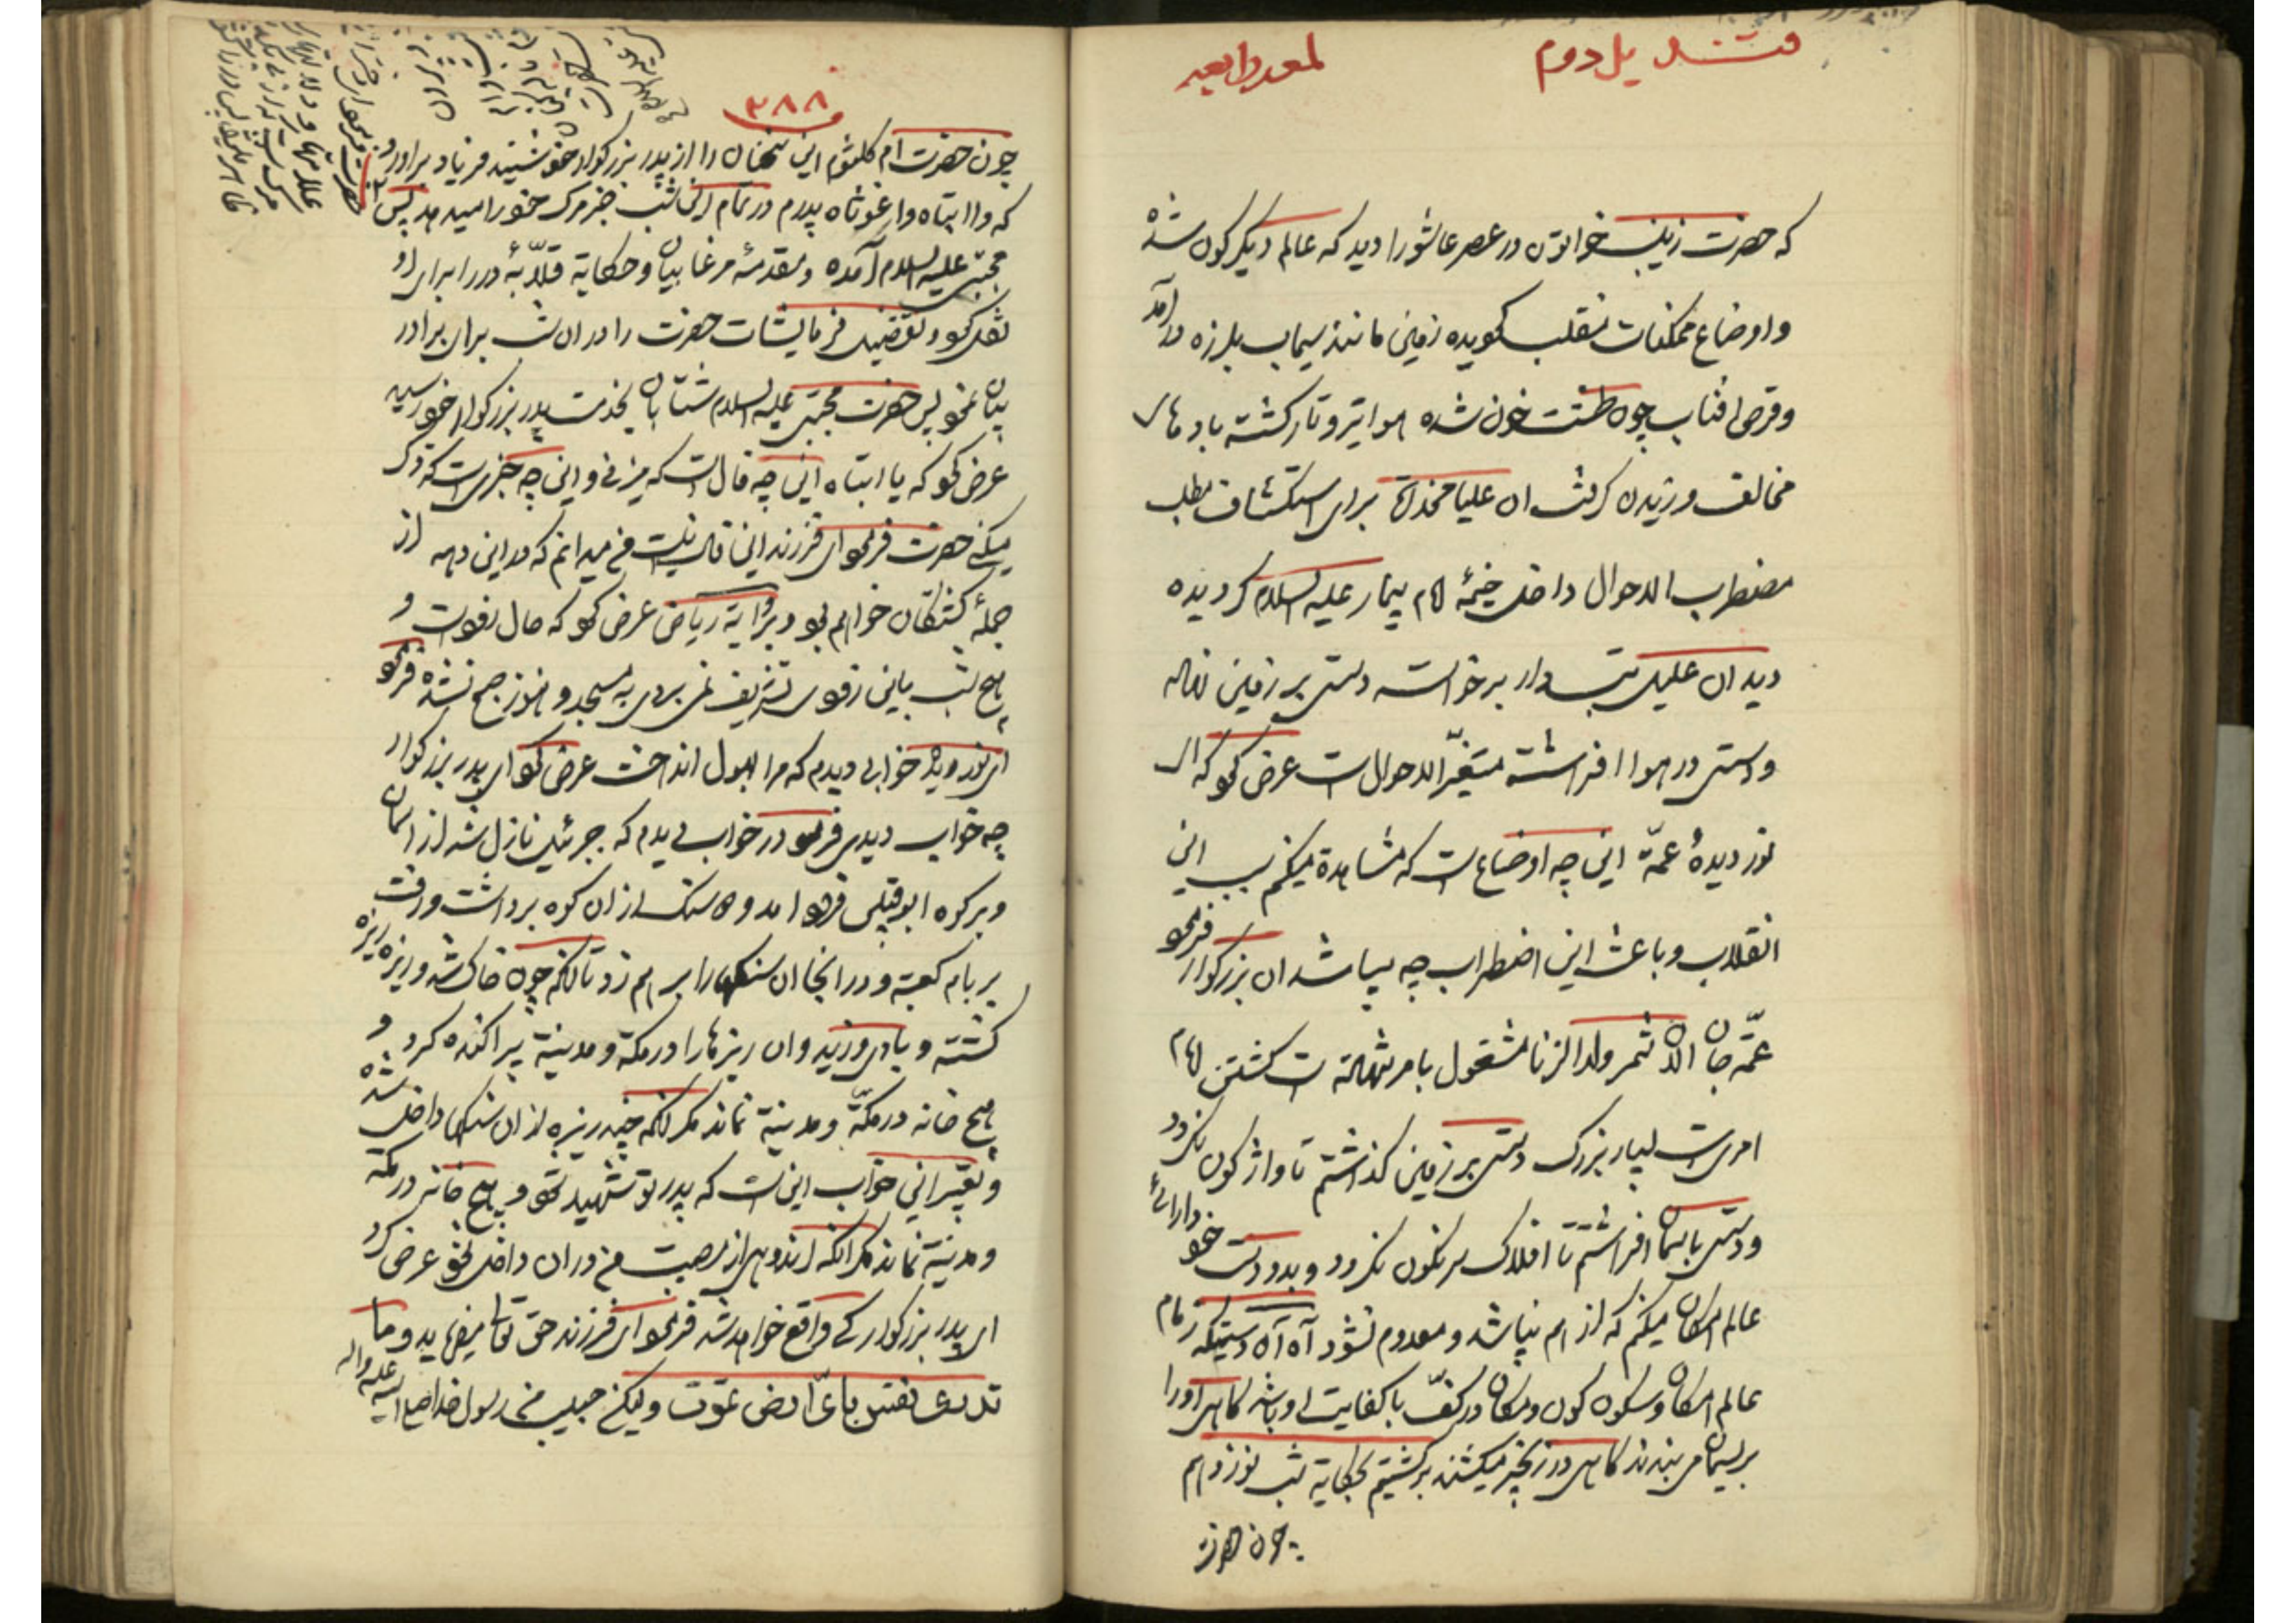 قندیل دوم
لمعه رابعه
که حضرت زینب خواتون در عصر عاشورا دید که عالم دیکرکون شده
و اوضاع ممکنات منقلب کردیده زمین مانند سیماب بلرزه درآمد
و قرص افتاب چون طشت خون شده هوا تیره و تار کشته بادهای
مخالف وزیدن کرفت ان علیا مخدره برای استکشاف مطلب
مضطرب الاحوال داخل خیمهٔ امام بیمار علیه السلام کردیده
دید ان علیل تبدار برخواسته دستی بر زمین نهاده
و دستی در هوا افراشته متغیّر الاحوال است عرض نمود که ای
نور دیدهٔ عمّه این چه اوضاع است که مشاهدة میکنم سبب این
انقلاب و باعث این اضطراب چه میباشد ان بزرکوار فرمود
عمّه جان الان شمر ولدالزنا مشغول بامر شهادة است کشتن امام
امری است بسیار بزرک دستی بر زمین کذاشتم تا واژکون نکردد
و دستی باسمان افراشتم تا افلاک سرنکون نکردد و بدو دست خود دارائی
عالم امکان میکنم که از هم نپاشد و معدوم نشود آه آه دستیکه زمام
عالم امکان و سکون کون و مکان در کفّ با کفایت او باشد کاهی او را
بریسمان می بندند کاهی در زنجیر میکشند برکشتیم بحکایة شب نوزدهم
چون حضرت
۳۸۸
چون حضرت ام کلثوم این سخنان را از پدر بزرکوار خود شنید فریاد براورد
که وا ابتاه وا غوثاه پدرم در تمام این شب خبر مرک خود را میدهد پس
مجتبی علیه السلام آمده و مقدمهٔ مرغابیان و حکایة قلّابهٔ در را برای او
نقل نمود و تفصیل فرمایشات حضرت را در ان شب برای برادر
بیان نمود پس حضرت مجتبی علیه السلام شتابان بخدمت پدر بزرکوار خود رسید
عرض نمود که یا ابتاه این چه فال است که میزنی و این چه خبری است که ذکر
میکنی حضرت فرمود ای فرزند این فال نیست من میدانم که در این دهه از
جملهٔ کشتکان خواهم بود و بروایة ریاض عرض نمود که حال رفوت و
هیچ شب باین زودی تشریف نمی بردی به مسجد و هنوز صبح نشده فرمود
ای نور دیده خوابی دیدم که مرا بهول انداخت عرض نمود ای پدر بزرکوار
چه خواب دیدی فرمود در خواب دیدم که جبرئیل نازل شد از اسمان
و بر کوه ابوقبیس فرود امد و دو سنک از ان کوه برداشت و رفت
بر بام کعبه و در انجا ان سنکها را بر هم زد تا انکه چون خاک شد و ریزه ریزه
کشته و بادی وزید و ان ریزها را در مکة و مدینة پراکنده کرد و
هیچ خانه در مکّة و مدینة نماند مکر انکه چند ریزه از ان سنکها داخل شد
و تعبیر این خواب این است که پدر تو شهید شود و هیچ خانه در مکة
و مدینة نماند مکر انکه اندوهی از مصیبت من در ان داخل شود عرض کرد
ای پدر بزرکوار کی واقع خواهد شد فرمود ای فرزند حق تعالی میفرماید و ما
تدری نفس بایّ ارض تموت ولیکن حبیب من رسول خدا صلی الله علیه واله